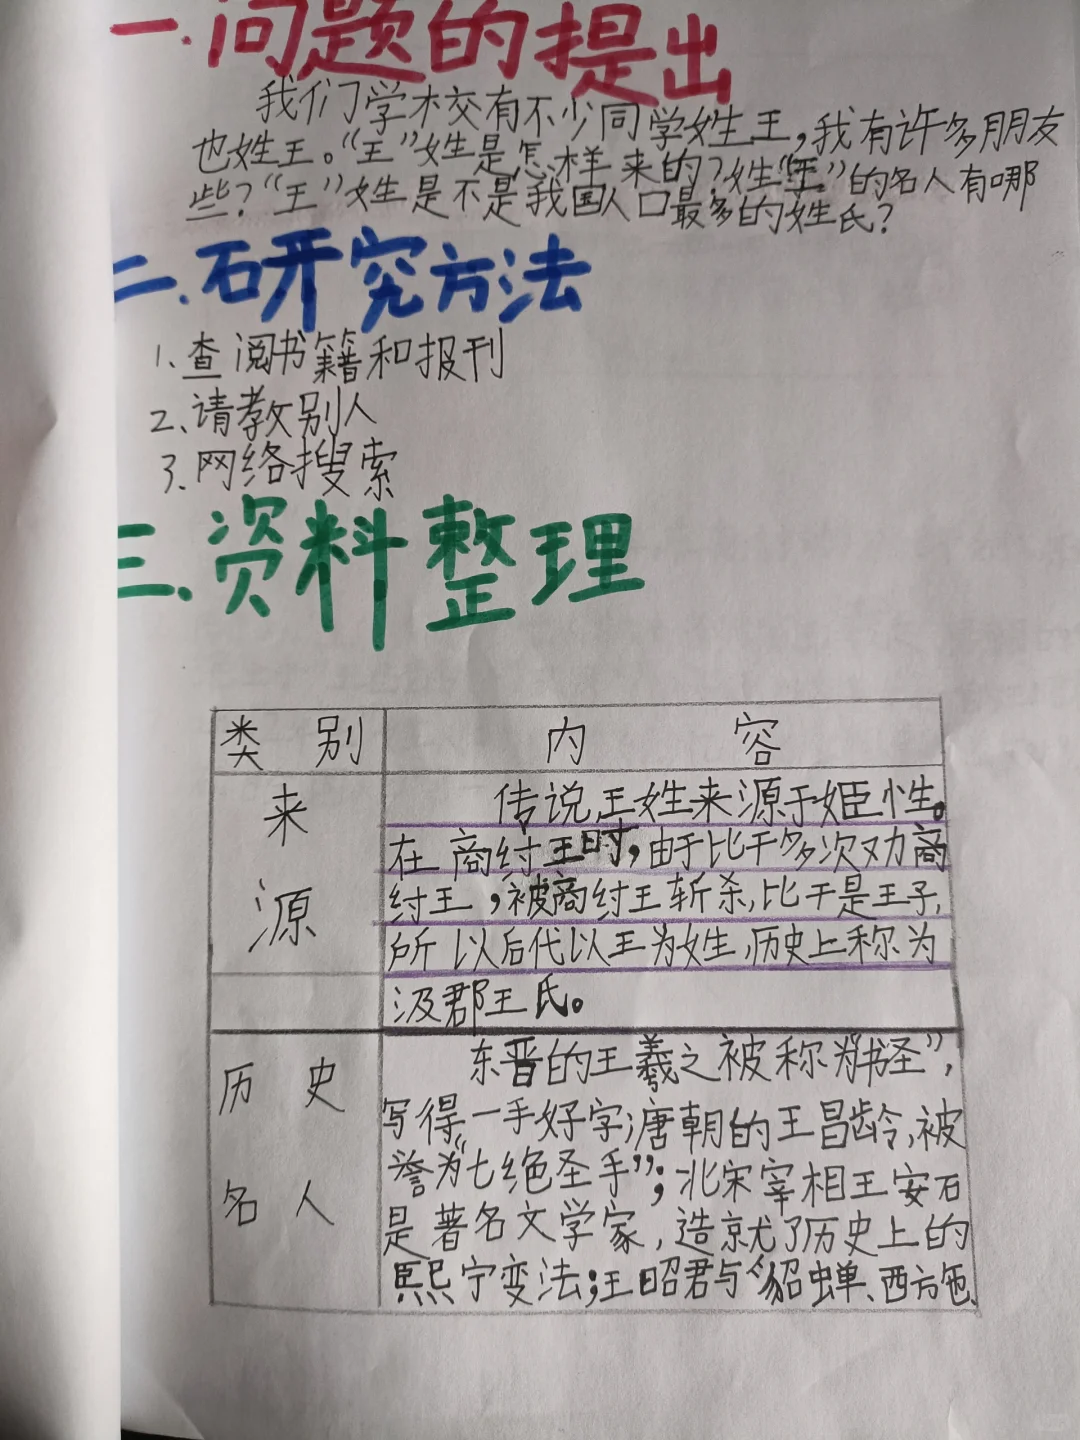 一.问题的提出
我们学校有不少同学姓王,我有许多朋友
也姓王。“王”姓是怎样来的?姓“王”的名人有哪
些?“王”姓是不是我国人口最多的姓氏?
二.研究方法
1.查阅书籍和报刊
2、请教别人
3.网络搜索
三.资料整理
类别 内容
来源
传说,王姓来源于姬小性。
在商纣王时,由于比干多次劝商
纣王,被商纣王斩杀,比干是王子,
所以后代以王为姓,历史上称为
汲郡王氏。
历史名人
东晋的王羲之被称为“书圣”,
写得一手好字;唐朝的王昌龄,被
誉为“七绝圣手”;北宋宰相王安石
是著名文学家,造就了历史上的
熙宁变法;王昭君与“貂蝉、西方包、